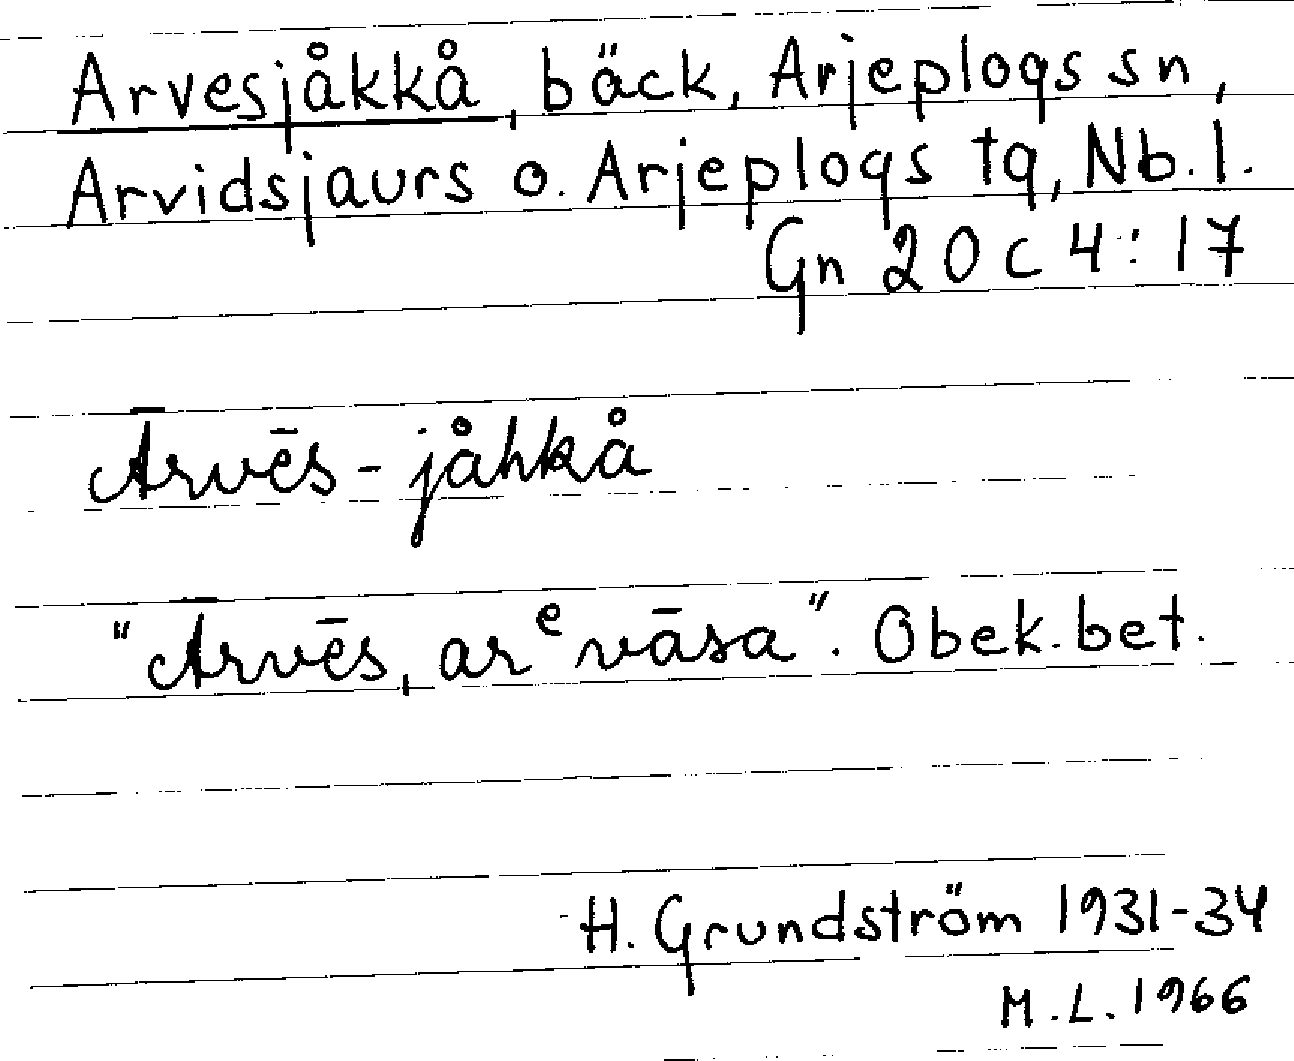 Arvesjåkkå, bäck, Arjeplogs sn,
Arvidsjaurs o. Arjeplogs tg, Nb. l.
Gn 20 c 4 : 17
Ārvēs - jåhkå
"Ārvēs, arᵉvāsa". Obek. bet.
H. Grundström 1931-34
M. L. 1966